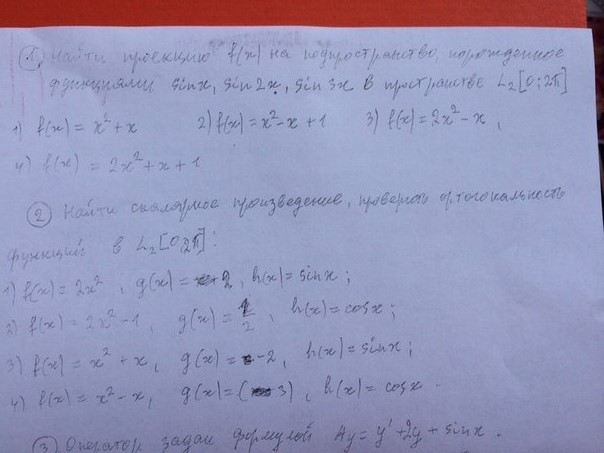 ① Найти проекцию f(x) на подпространство, порожденное
функциями sinx, sin2x, sin3x в пространстве L₂[0;2π]
1) f(x) = x²+x 2) f(x)=x²-x+1 3) f(x)=2x²-x,
4) f(x) = 2x²+x+1
② Найти скалярное произведение, проверить ортогональность
функций в L₂[0,2π]:
1) f(x) = 2x², g(x) = 2, h(x)=sinx;
2) f(x) = 2x²-1, g(x) = 1/2, h(x)=cosx;
3) f(x) = x²+x, g(x) = -2, h(x)=sinx;
4) f(x) = x²-x, g(x)=( 3), h(x) = cosx.
③ Оператор задан формулой Ay = y'+2y+sinx.